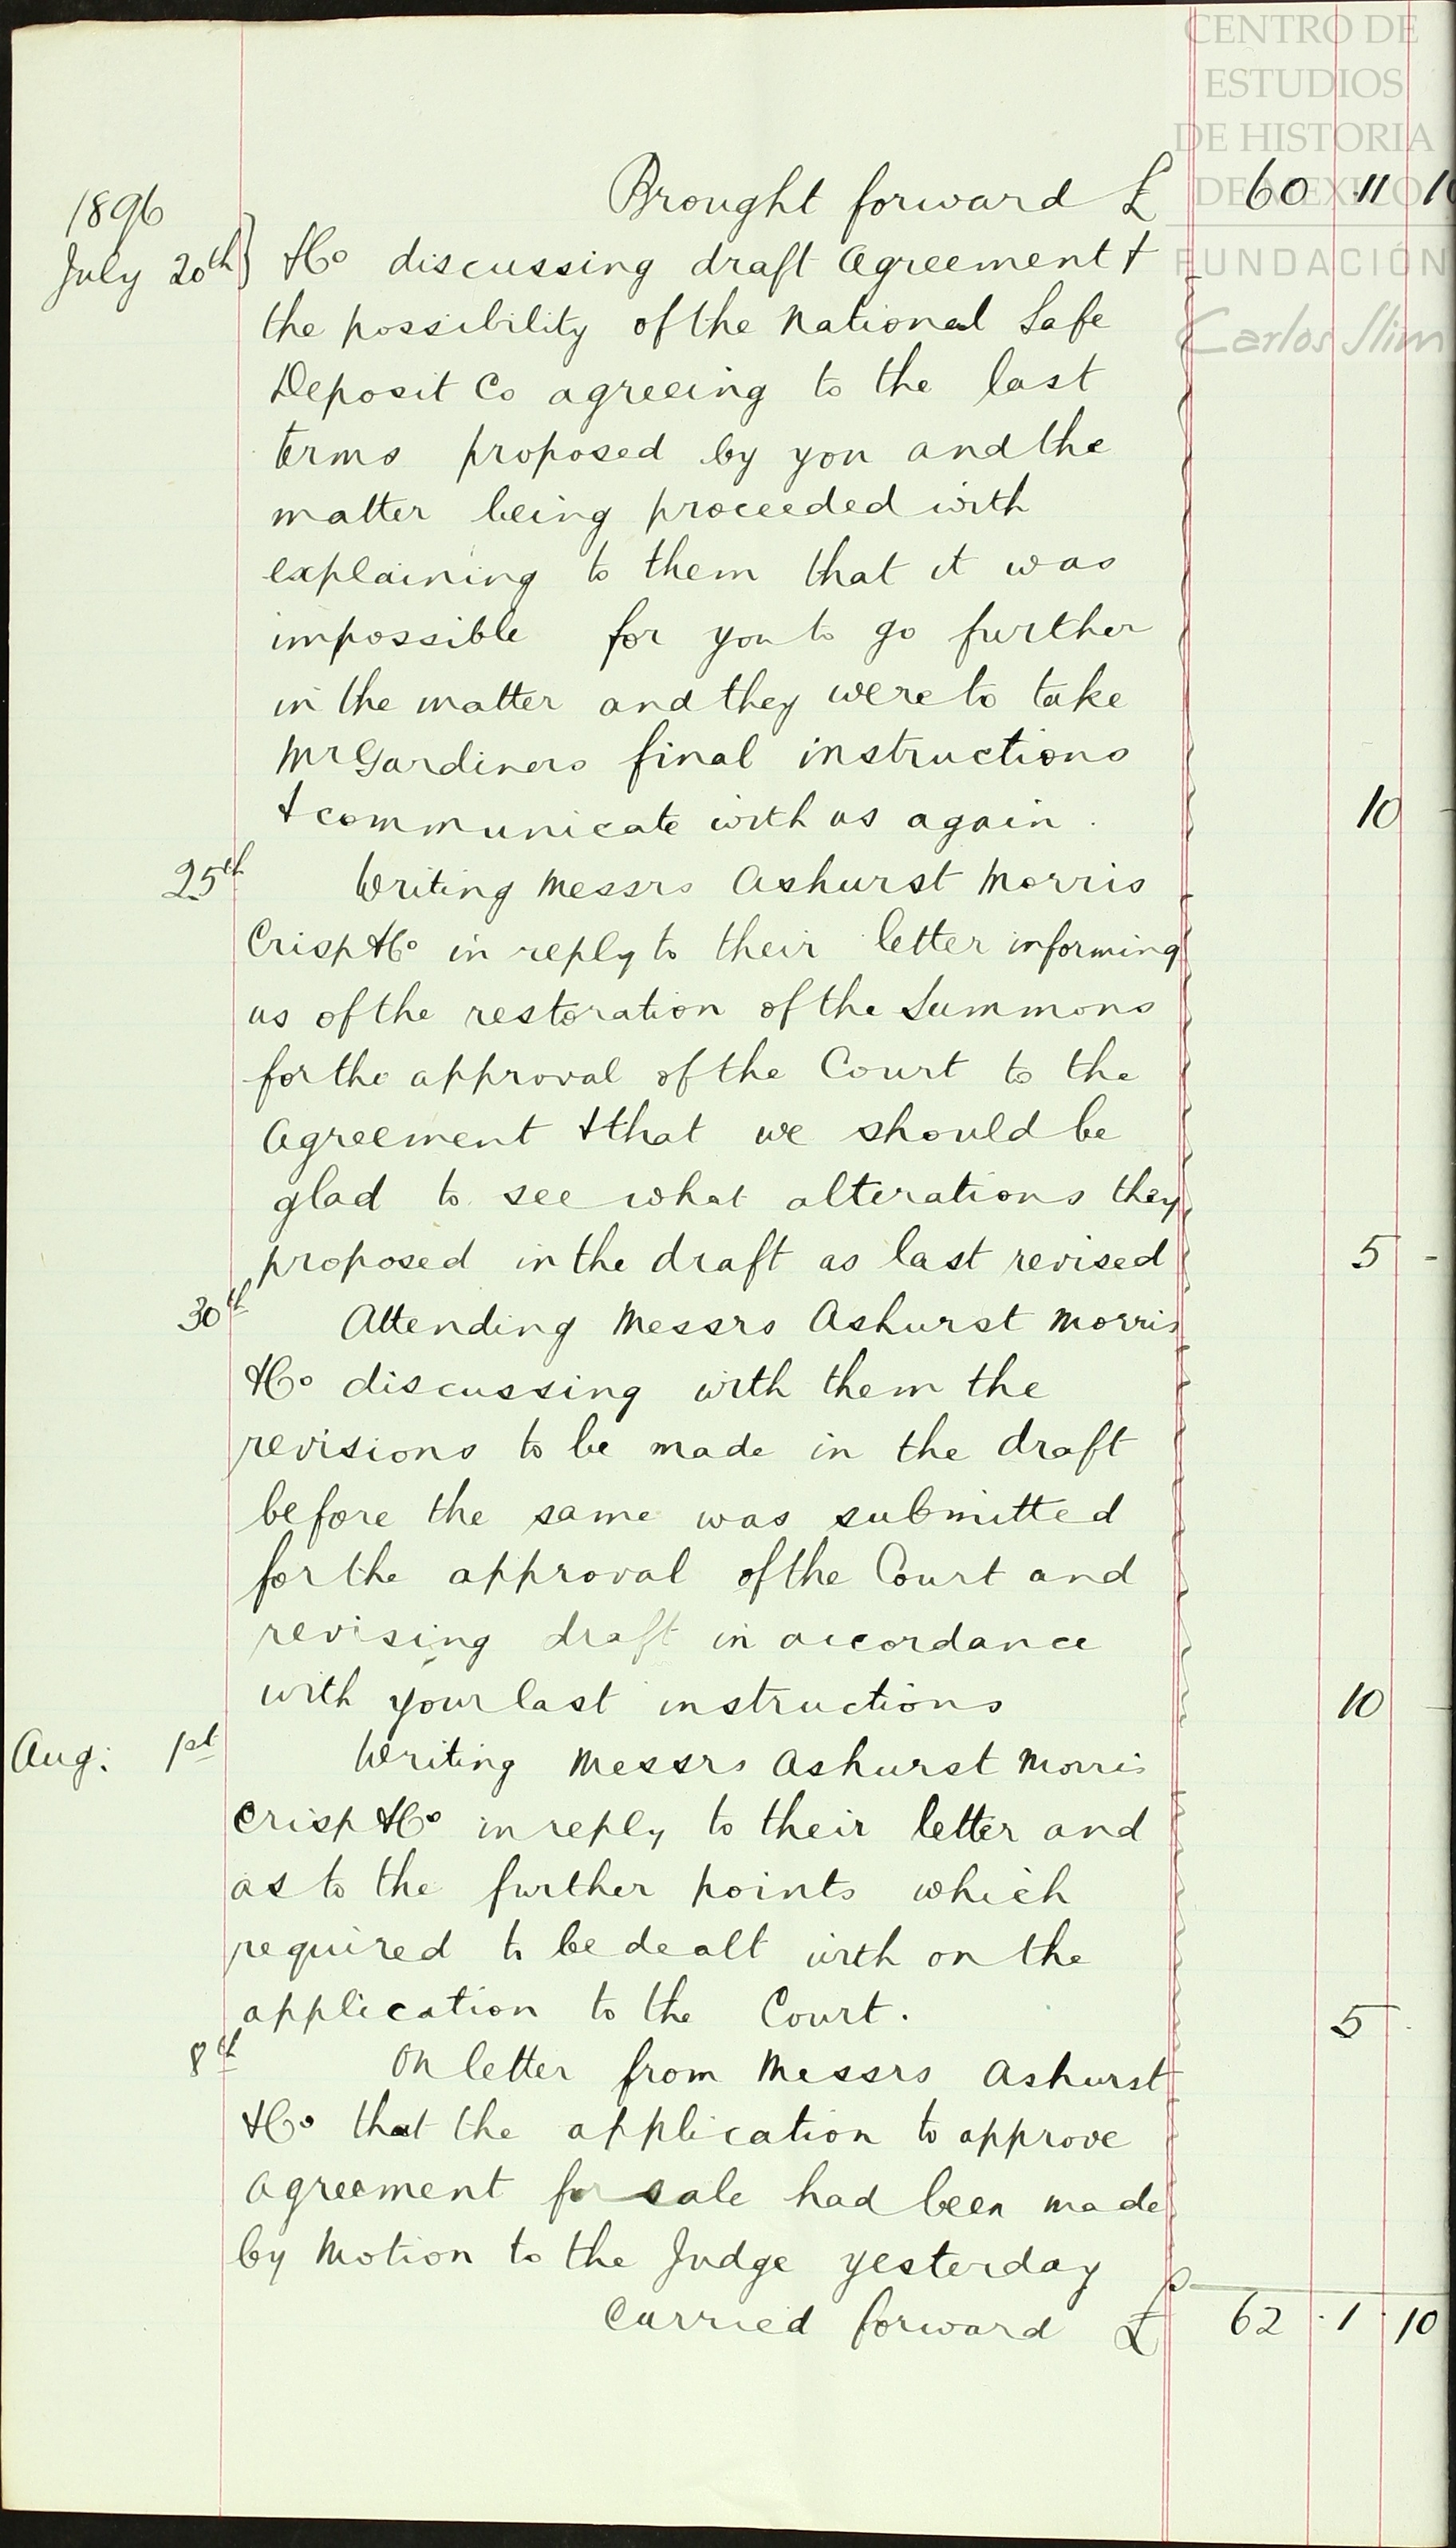 CENTRO DE
ESTUDIOS
DE HISTORIA
DE MEXICO
FUNDACIÓN
Carlos Slim
Brought forward £ 60 11 10
1896
July 20th} & Co discussing draft Agreement &
the possibility of the National Safe
Deposit Co agreeing to the last
terms proposed by you and the
matter being proceeded with
explaining to them that it was
impossible for you to go further
in the matter and they were to take
Mr Gardiners final instructions
& communicate with us again. 10 -
25th Writing Messrs Ashurst Morris
Crisp & Co in reply to their letter informing
us of the restoration of the Summons
for the approval of the Court to the
Agreement & that we should be
glad to see what alterations they
proposed in the draft as last revised 5 -
30th Attending Messrs Ashurst Morris
& Co discussing with them the
revisions to be made in the draft
before the same was submitted
for the approval of the Court and
revising draft in accordance
with your last instructions 10 -
Aug: 1st Writing Messrs Ashurst Morris
Crisp & Co in reply to their letter and
as to the further points which
required to be dealt with on the
application to the Court. 5 -
8th On letter from Messrs Ashurst
& Co that the application to approve
Agreement for sale had been made
by Motion to the Judge yesterday
Carried forward £ 62 . 1 . 10